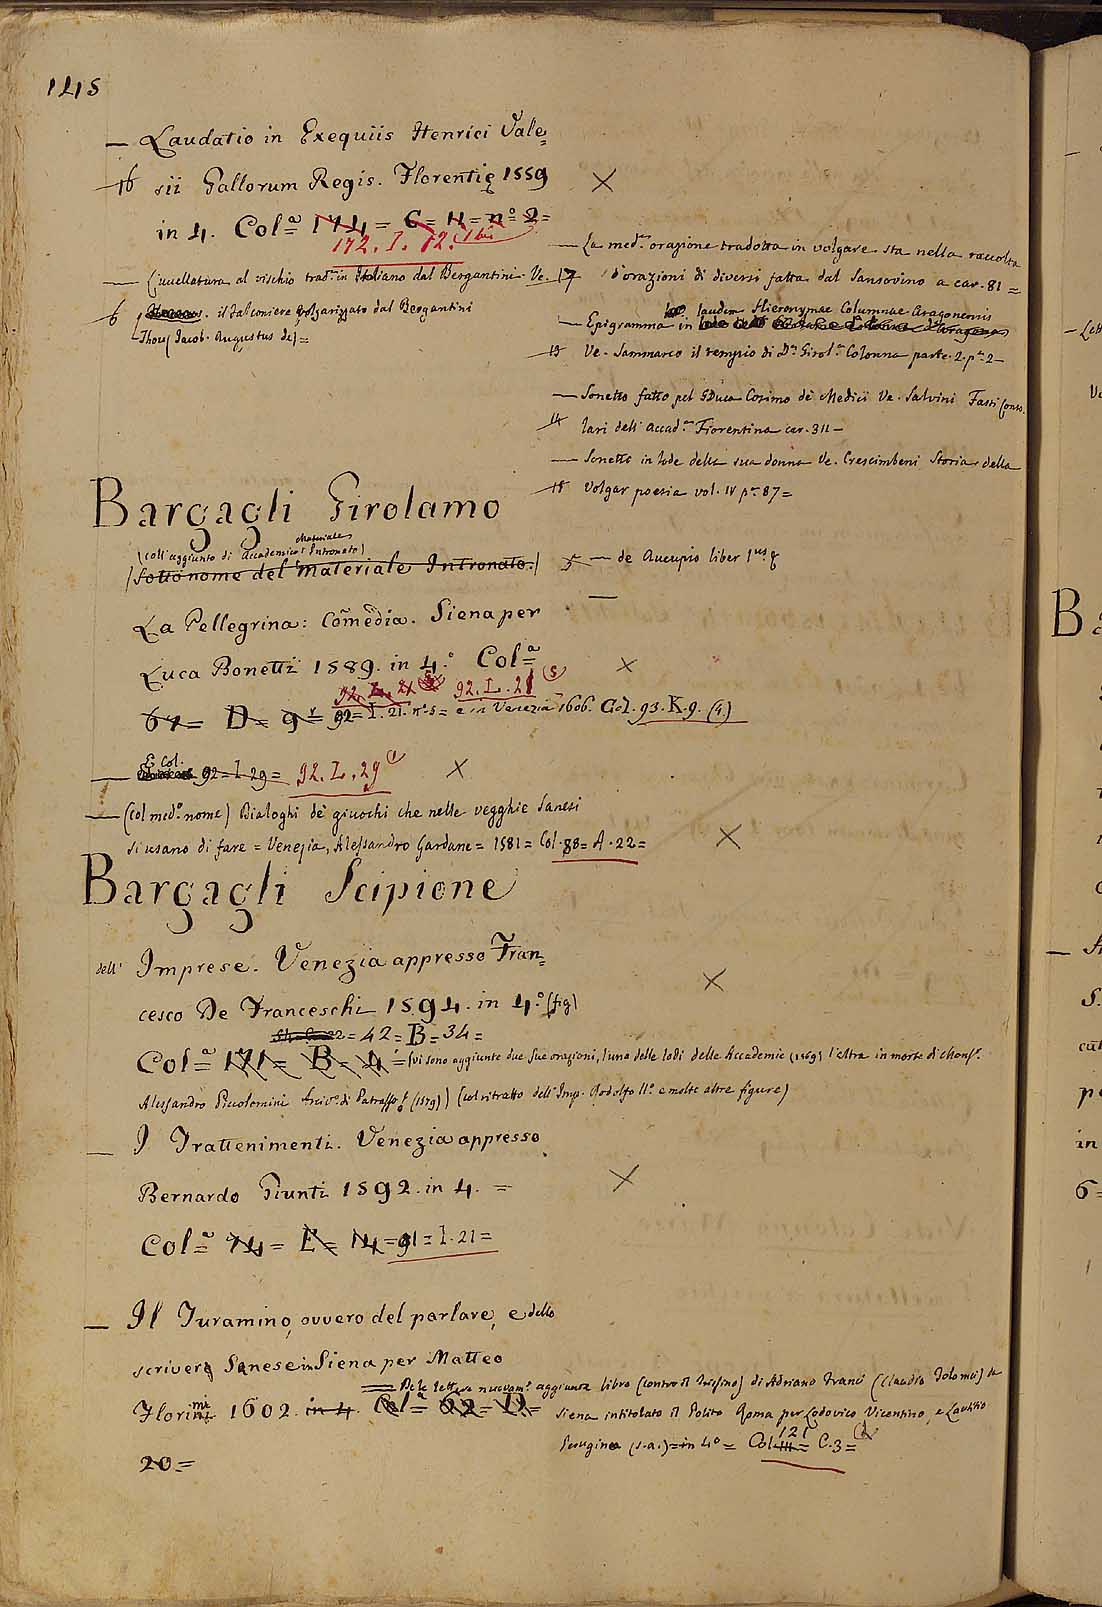 145
— Laudatio in Exequiis Henrici Vale=
16 sii Gallorum Regis. Florentię 1559
in 4. Col.ª 174 = C = 4 = n.º 2 =
172. I. 12.
— Jucellatura al vischio trad.ª in Italiano dal Bergantini. Ve.
6 il Falconiere volgarizzato dal Bergantini
Thou (Jacob. Augustus de) =
— La med.ª orazione tradotta in volgare sta nella raccolta
17 d'orazioni di diversi fatta dal Sansovino a car. 81 =
laudem Hieronymae Columnae Aragonensis
— Epigramma in
13 Ve. Sammarco il tempio di D.ª Girol.ª Colonna parte. 2. p.ª 2 —
— Sonetto fatto pel GDuca Cosimo de Medici Ve. Salvini Fasti Conso
14 lari dell' Accad.ª Fiorentina car. 311 —
— Sonetto in lode della sua donna Ve. Crescimbeni Storia della
18 Volgar poesia vol. IV p.ª 87 =
5 — de Aucupio liber 1.us
Bargagli Girolamo
Materiale
(coll'aggiunto di Accademico Intronato)
(Sotto nome del Materiale Intronato.)
La Pellegrina: Comedia. Siena per
Luca Bonetti 1589. in 4.º Col.ª
92. L. 21 (5)
67 = D = 9 92 = I. 21. n.º 5 = e in Venezia 1606. Col. 93. K. 9. (4.)
E Col.
— 92 = I 29 = 92. L. 29 (1)
— (col med.º nome) Dialoghi de giuochi che nelle vegghie Sanesi
si usano di fare = Venezia, Alessandro Gardane = 1581 = Col. 88 = A. 22 =
Bargagli Scipione
dell' Imprese. Venezia appresso Fran=
cesco De Franceschi 1594. in 4.º (fig)
= 42 = B = 34 =
Col.ª 171 = B = 4 = (vi sono aggiunte due sue orazioni, l'una delle lodi delle Accademie (1569) l'altra in morte di Mons.r
Alessandro Piccolomini Arciv.º di Patrasso (1579)) (col ritratto dell' Imp. Rodolfo II.º e molte altre figure)
— I Trattenimenti. Venezia appresso
Bernardo Giunti 1592. in 4. =
Col.ª 74 = E = 14 = 91 = I. 21 =
— Il Turamino, ovvero del parlare, e dello
scriver Sanese in Siena per Matteo
Florimi 1602. in 4. Col.ª 62 = D =
20. =
— De le lettere nuovam.e aggiunte libro (contro il Trissino) di Adriano Franci (Claudio Tolomei) da
Siena intitolato il Polito Roma per Lodovico Vicentino, e Lautitio
Perugino (s.a.) = in 4º = Col. 121 = C. 3 =